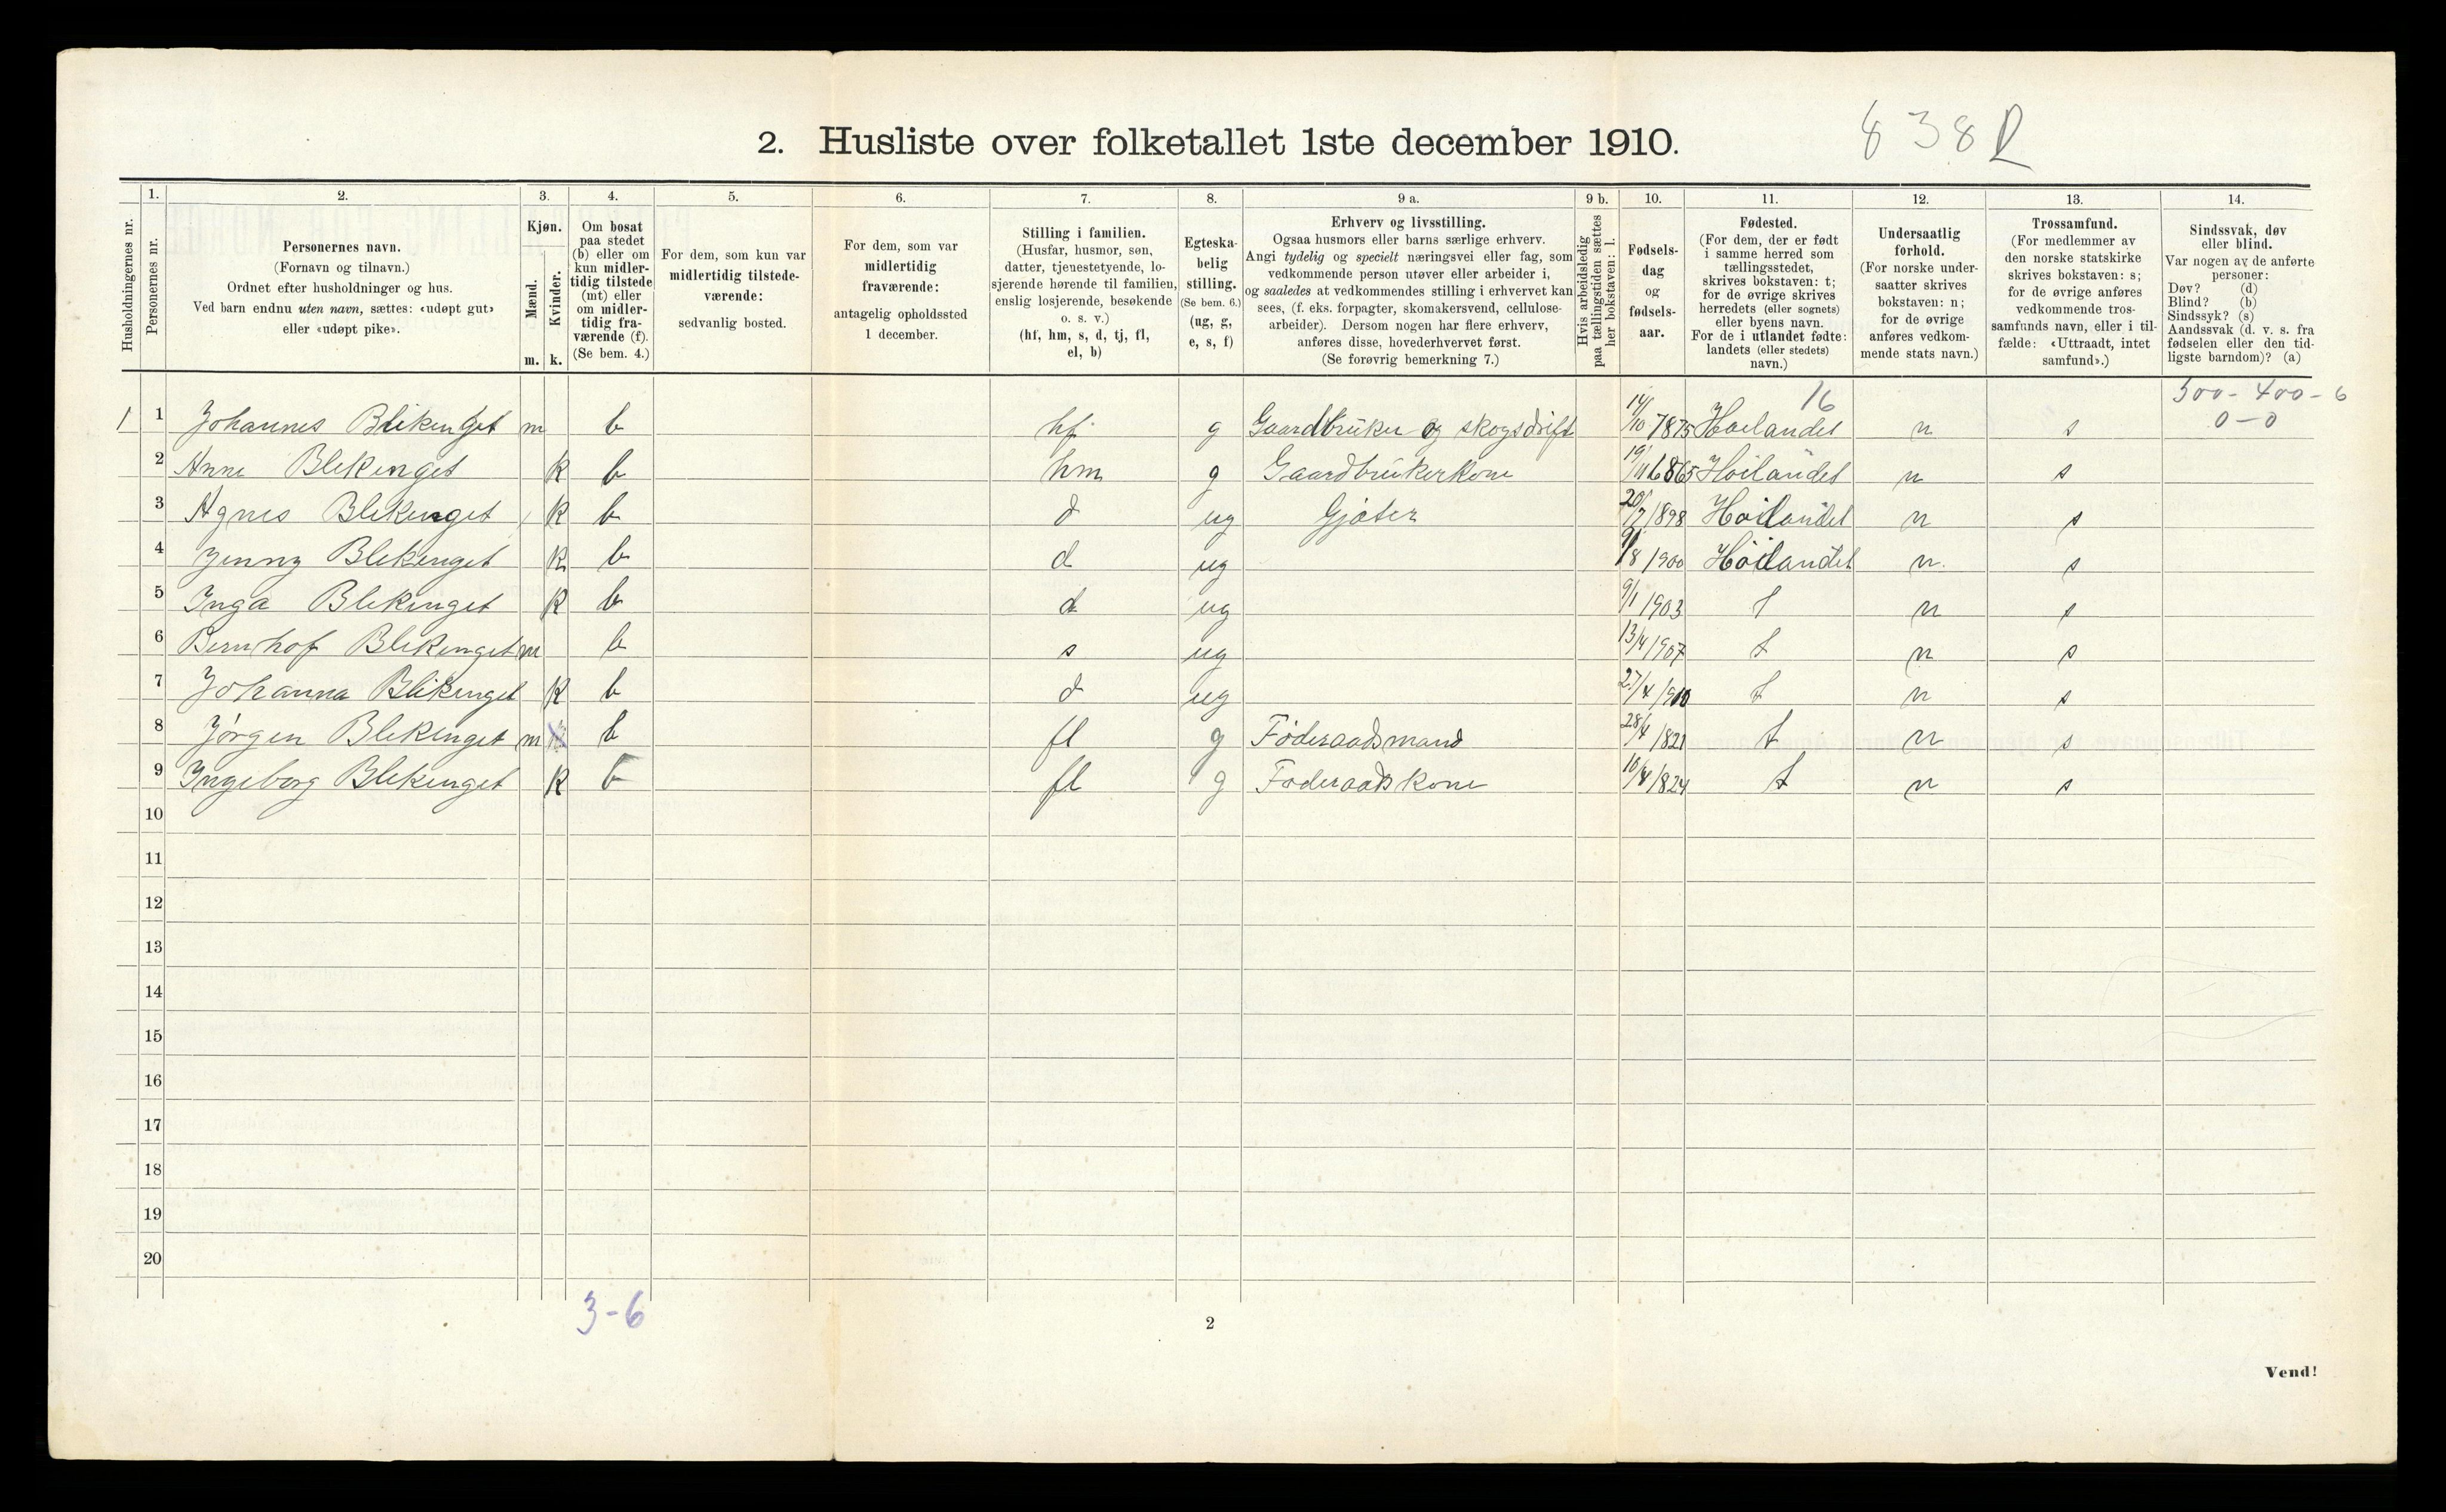 838R
2. Husliste over folketallet 1ste december 1910.
Husholdningernes nr.
1.
Personernes nr.
2.
Personernes navn.
(Fornavn og tilnavn.)
Ordnet efter husholdninger og hus.
Ved barn endnu uten navn, sættes: «udøpt gut»
eller «udøpt pike».
3.
Kjøn.
Mænd.
Kvinder.
m. k.
4.
Om bosat
paa stedet
(b) eller om
kun midler-
tidig tilstede
(mt) eller
om midler-
tidig fra-
værende (f).
(Se bem. 4.)
5.
For dem, som kun var
midlertidig tilstede-
værende:
sedvanlig bosted.
6.
For dem, som var
midlertidig
fraværende:
antagelig opholdssted
1 december.
7.
Stilling i familien.
(Husfar, husmor, søn,
datter, tjenestetyende, lo-
sjerende hørende til familien,
enslig losjerende, besøkende
o. s. v.)
(hf, hm, s, d, tj, fl,
el, b)
8.
Egteska-
belig
stilling.
(Se bem. 6.)
(ug, g,
e, s, f)
9 a.
Erhverv og livsstilling.
Ogsaa husmors eller barns særlige erhverv.
Angi tydelig og specielt næringsvei eller fag, som
vedkommende person utøver eller arbeider i,
og saaledes at vedkommendes stilling i erhvervet kan
sees, (f. eks. forpagter, skomakersvend, cellulose-
arbeider). Dersom nogen har flere erhverv,
anføres disse, hovederhvervet først.
(Se forøvrig bemerkning 7.)
9 b.
Hvis arbeidsledig
paa tællingstiden sættes
her bokstaven: l.
10.
Fødsels-
dag
og
fødsels-
aar.
11.
Fødested.
(For dem, der er født
i samme herred som
tællingsstedet,
skrives bokstaven: t;
for de øvrige skrives
herredets (eller sognets)
eller byens navn.
For de i utlandet fødte:
landets (eller stedets)
navn.)
12.
Undersaatlig
forhold.
(For norske under-
saatter skrives
bokstaven: n;
for de øvrige
anføres vedkom-
mende stats navn.)
13.
Trossamfund.
(For medlemmer av
den norske statskirke
skrives bokstaven: s;
for de øvrige anføres
vedkommende tros-
samfunds navn, eller i til-
fælde: «Uttraadt, intet
samfund».)
14.
Sindssvak, døv
eller blind.
Var nogen av de anførte
personer:
Døv? (d)
Blind? (b)
Sindssyk? (s)
Aandssvak (d. v. s. fra
fødselen eller den tid-
ligste barndom)? (a)
16
500 - 400 - 6
0 - 0
1 1 Johannes Blikenget m b hf g Gaardbruker og skogsdrift 14/10 1875 Høilandet n s
2 Anne Blekenget k b hm g Gaardbrukerkone 19/11 1865 Høilandet n s
3 Agnes Blekenget k b d ug Gjæter 20/7 1898 Høilandet n s
4 Jenny Blekenget k b d ug 9/8 1900 Høilandet n s
5 Inga Blekenget k b d ug 9/1 1903 t n s
6 Bernhof Blekenget m b s ug 13/4 1907 t n s
7 Johanna Blikenget k b d ug 27/4 1910 t n s
8 Jørgen Blekenget m b fl g Føderaadsmand 28/4 1821 t n s
9 Ingeborg Blekenget k b fl g Føderaadskone 16/4 1824 t n s
10
11
12
13
14
15
16
17
18
19
20
3-6
2
Vend!